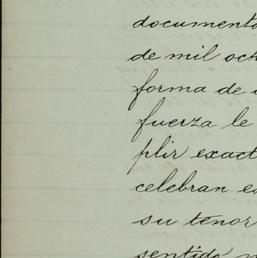 documento
de mil och
forma de
fuerza le
plir exact
celebran es
su tenor
sentido